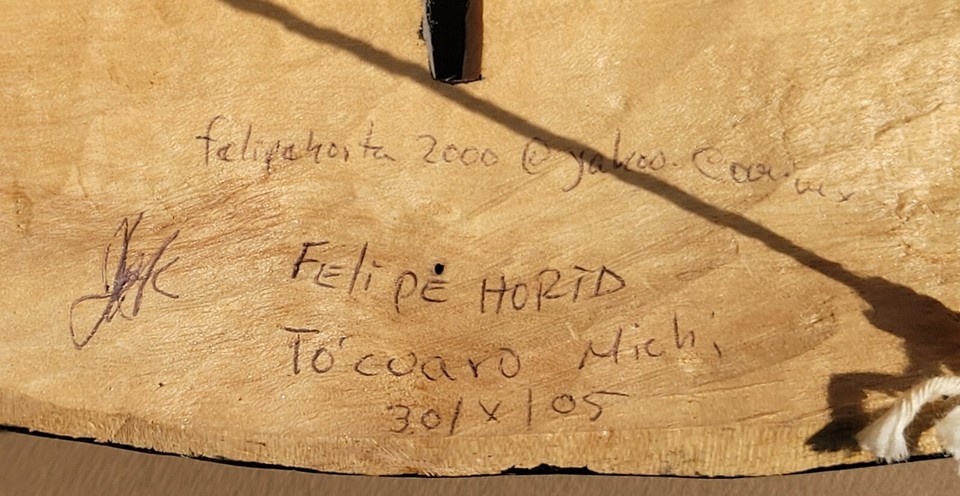 felipehorta 2000 @ yahoo.com.mx
FElipE HORTA
Tócuaro Mich;
30/X/05